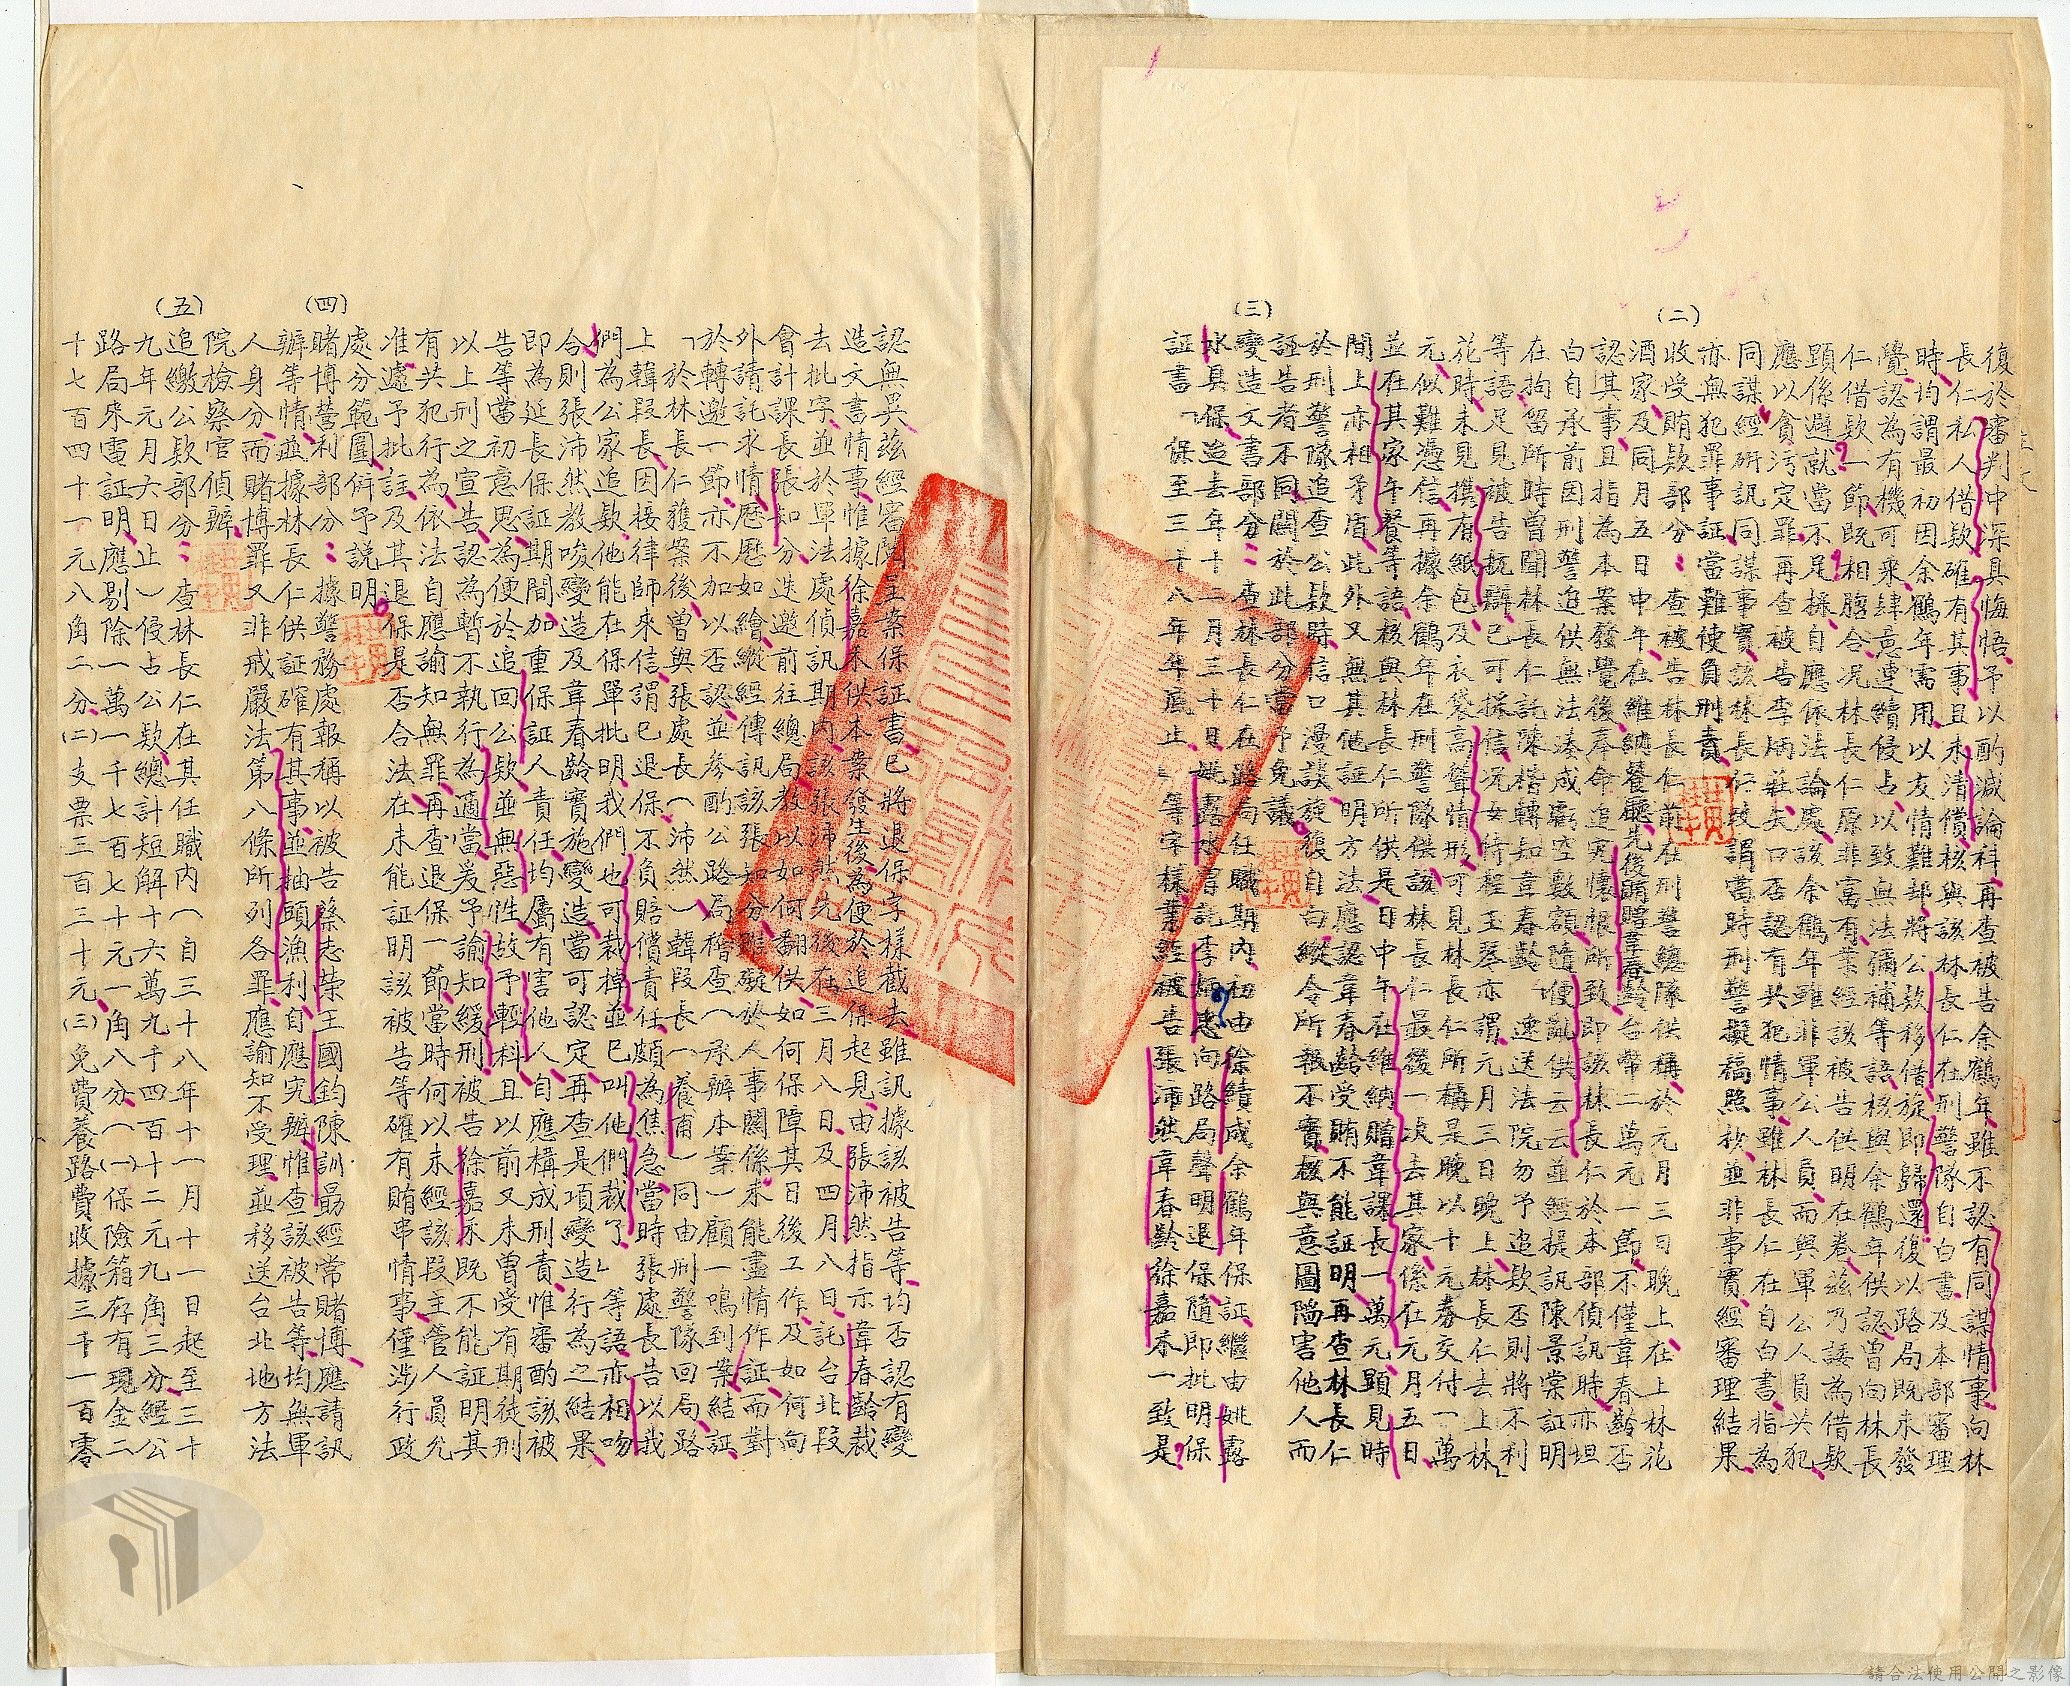 復於審判中深具悔悟予以酌減論科再查被告余鶴年雖不認有同謀情事向林
長仁私人借欵確有其事且未清償核與該林長仁在刑警隊自白書及本部審理
時均謂最初因余鶴年需用以友情難郤將公欵移借旋即歸還復以路局既未發
覺認為有機可乘肆意連續侵占以致無法彌補等語核與余鶴年供認曾向林長
仁借欵一節既相脗合况林長仁原非富有業經該被告供明在卷茲乃諉為借欵
顯係避就當不足採自應依法論處該余鶴年雖非軍公人員而與軍公人員共犯
應以貪污定罪再查被告李炳莊矢口否認有共犯情事雖林長仁在自白書指為
同謀經研訊同謀事實該林長仁致謂當時刑警擬稿照抄並非事實經審理結果
亦無犯罪事証當難使負刑責
(二)
收受賄欵部分：查被告林長仁前在刑警總隊供稱於元月三日晚上在上林花
酒家及同月五日中午在維納餐廳先後賄賂韋春齡台幣二萬元一節不僅韋春齡否
認其事且指為本案發覺後奉命追究懷恨所致即該林長仁於本部偵訊時亦坦
白自承前因刑警追供無法湊成虧空數額隨便亂供云云並經提訊陳景棠証明
在拘留所時曾聞林長仁託陳楷轉知韋春齡「速送法院勿予追欵否則將不利」
等語足見被告抵辯已可採信况女侍程玉琴亦謂元月三日晚上林長仁去上林
花時未見携有紙包及衣袋高聳情形可見林長仁所稱是晚以十元券交付一萬
元似難憑信再據余鶴年在刑警隊供該林長仁最後一次去其家係在元月五日
並在其家午餐等語核與林長仁所供是日中午在維納贈韋課長一萬元顯見時
間上亦相矛盾此外又無其他証明方法應認韋春齡受賄不能証明再查林長仁
於刑警隊追查公欵時信口漫談旋復自白縱令所報不實核與意圖陷害他人而
誣告者不同關於此部分當予免議
(三)
變造文書部分：查林長仁在路局任職期內初由徐績成余鶴年保証繼由姚露
水具保迨去年十二月三十日姚露水曾託李炳忠向路局聲明退保隨即批明保
証書「保至三十八年年底止」等字樣業經被告張沛然韋春齡徐嘉禾一致是
認無異茲經審閱呈案保証書已將退保字樣截去雖訊據該被告等均否認有變
造文書情事惟據徐嘉禾供本案發生後為便於追保起見由張沛然指示韋春齡裁
去批字並於軍法處偵訊期內該張沛然先後在三月八日及四月八日託台北段
會計課長張如分迭邀前往總局教以如何翻供如何保障其日後工作及如何向
外請託求情歷歷如繪縱經傳訊該張知分雖礙於人事關係未能盡情作証而對
於轉邀一節亦不加以否認並參酌公路局稽查（承辦本案）顧一鳴到案結証
「於林長仁獲案後曾與張處長（沛然）韓段長（養甫）同由刑警隊回局路
上韓段長因接律師來信謂已退保不負賠償責任頗為焦急當時張處長告以我
們為公家追欵他能在保單批明我們也可裁掉並已叫他們裁了」等語亦相吻
合則張沛然教唆變造及韋春齡實施變造當可認定再查是項變造行為之結果
即為延長保証期間加重保証人責任均屬有害他人自應構成刑責惟審酌該被
告等當初意思為便於追回公欵並無惡性故予輕科且以前又未曾受有期徒刑
以上刑之宣告認為暫不執行為適當爰予諭知緩刑被告徐嘉禾既不能証明其
有共犯行為依法自應諭知無罪再查退保一節當時何以未經該段主管人員允
准遽予批註及其退保是否合法在未能証明該被告等確有賄串情事僅涉行政
處分範圍併予說明
(四)
賭博營利部分：據警務處報稱以被告蔡志榮王國鈞陳訓勗經常賭博應請訊
辦等情並據林長仁供証確有其事並抽頭漁利自應究辦惟查該被告等均無軍
人身分而賭博罪又非戒嚴法第八條所列各罪應諭知不受理並移送台北地方法
院檢察官偵辦
(五)
追繳公欵部分：查林長仁在其任職內（自三十八年十一月十一日起至三十
九年元月六日止）侵占公欵總計短解十六萬九千四百十二元九角三分經公
路局來電証明應剔除一萬一千七百七十元一角八分（(一)保險箱存有現金二
十七百四十一元八角二分(二)支票三百三十元(三)免費養路費收據三千一百零
請合法使用公開之影像